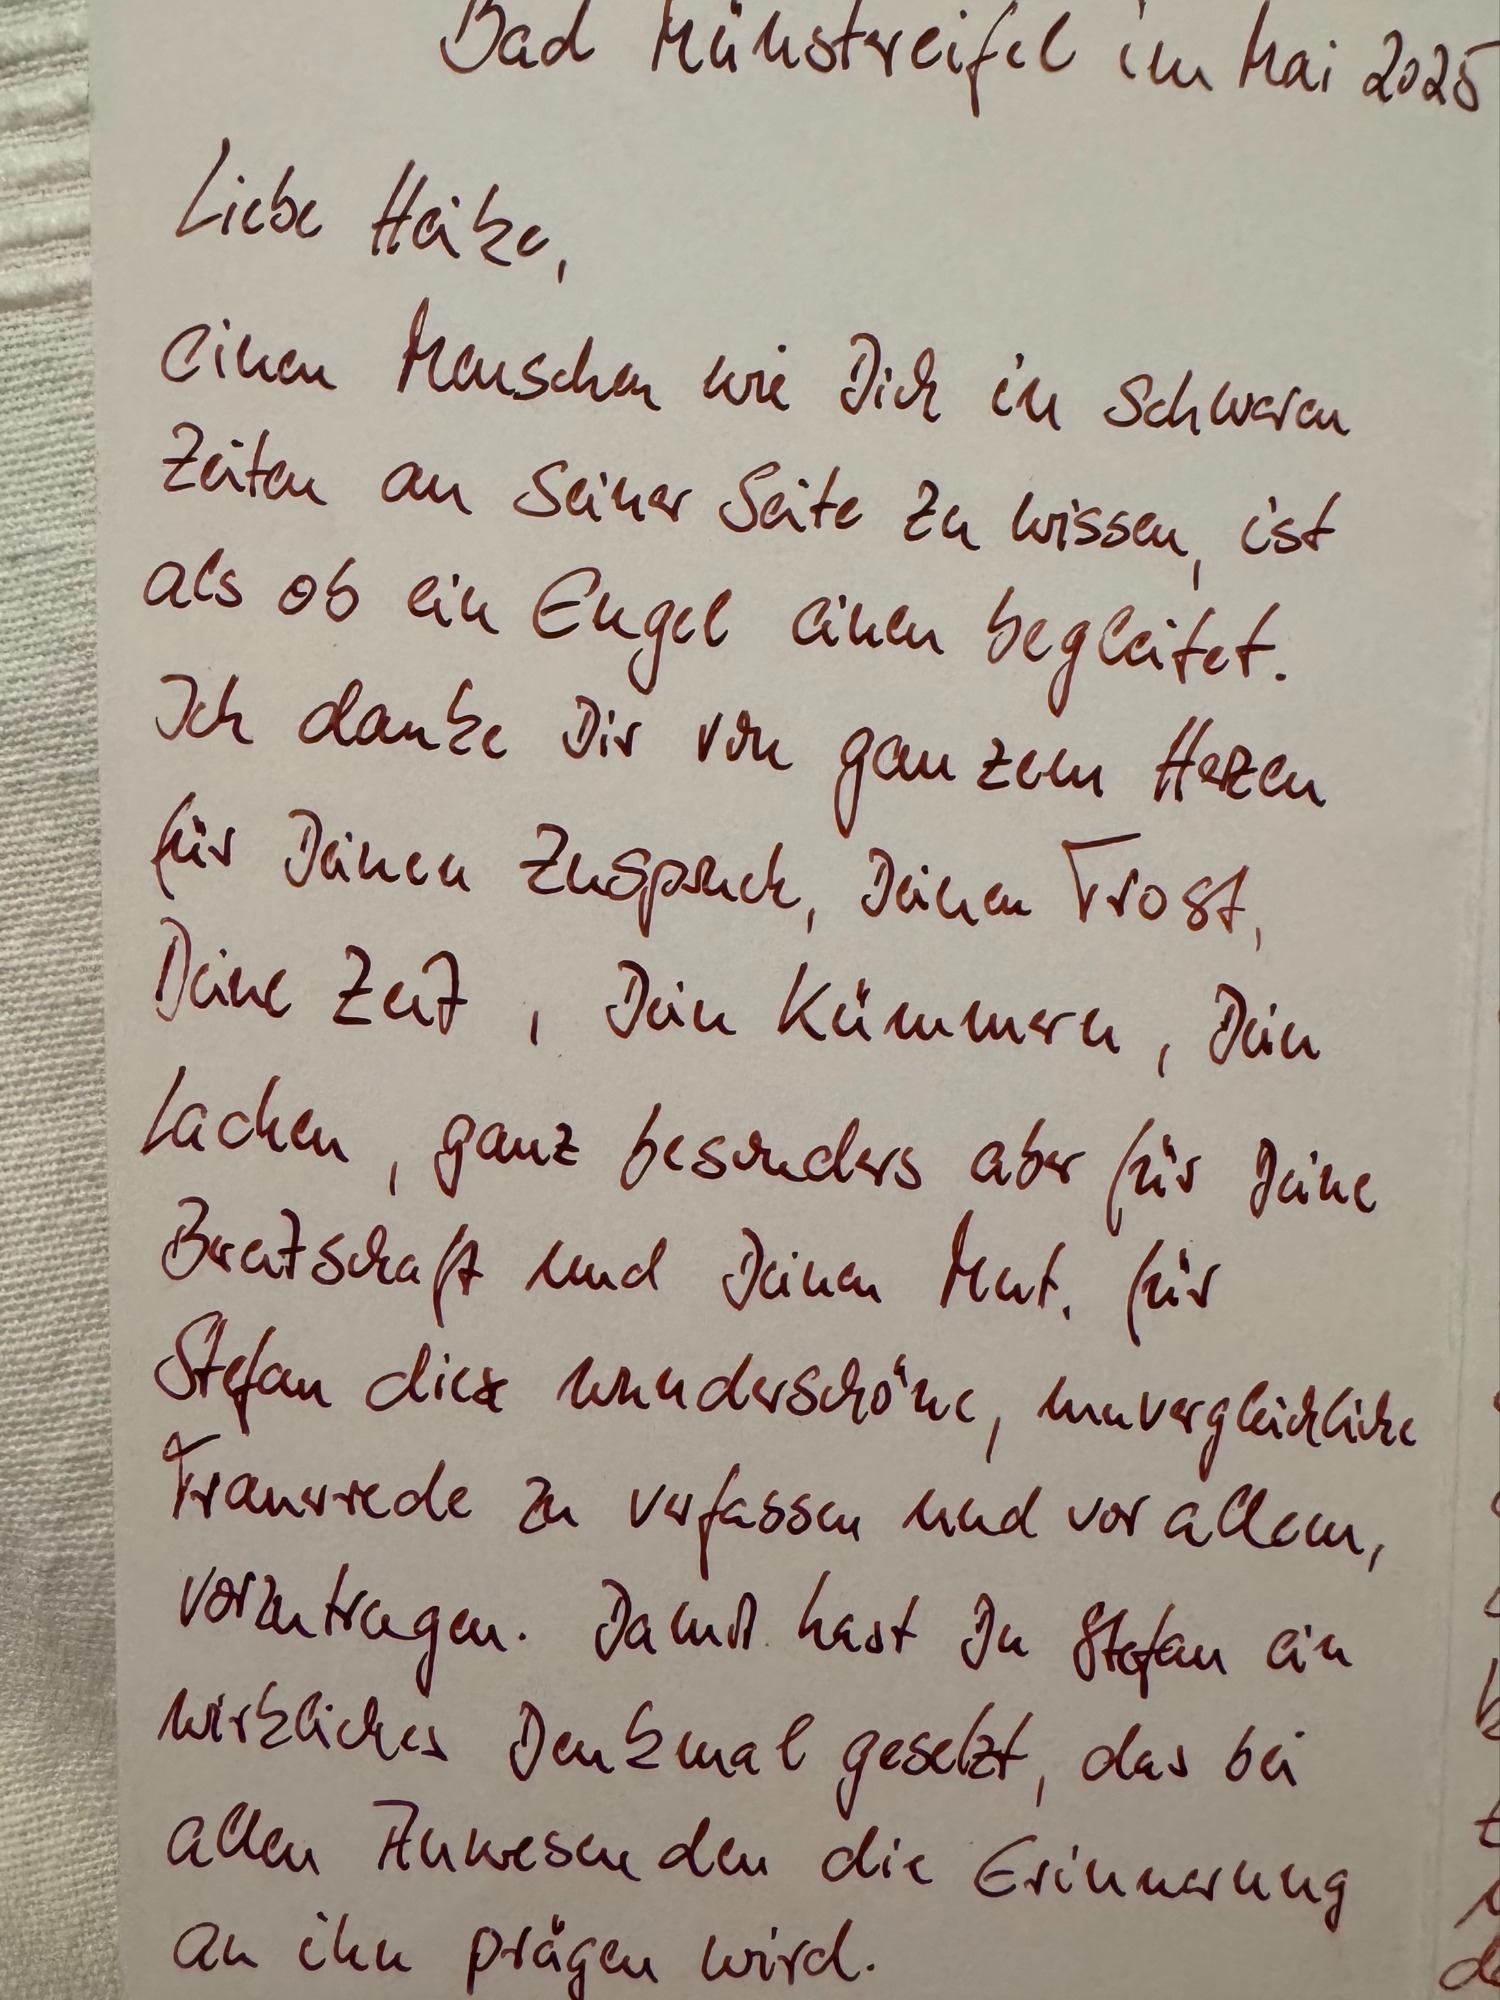 Bad Münstereifel im Mai 2025
Liebe Heike,
einen Menschen wie Dich in schweren
Zeiten an seiner Seite zu wissen, ist
als ob ein Engel einen begleitet.
Ich danke Dir von ganzem Herzen
für Deinen Zuspruch, Deinen Trost,
Deine Zeit, Dein Kümmern, Dein
Lachen, ganz besonders aber für Deine
Bereitschaft und Deinen Mut, für
Stefan diese wunderschöne, unvergleichliche
Trauerrede zu verfassen und vor allem,
vorzutragen. Damit hast Du Stefan ein
wirkliches Denkmal gesetzt, das bei
allen Anwesenden die Erinnerung
an ihn prägen wird.